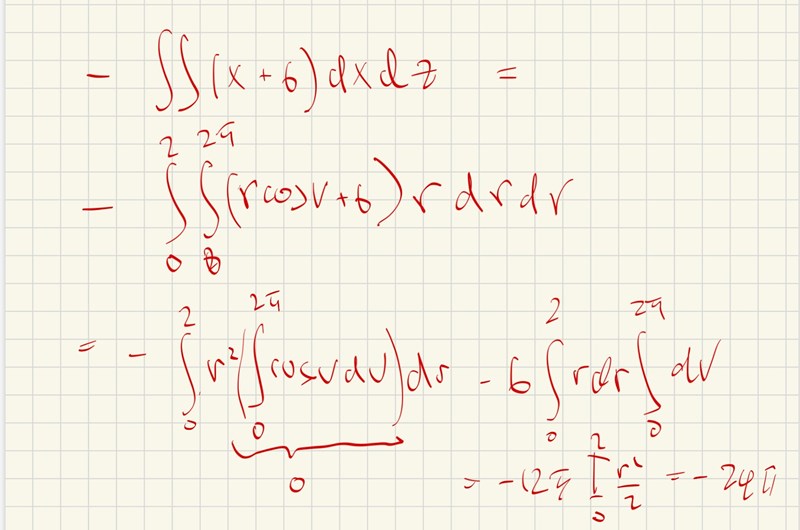 - ∬ (x + 6) dx dz =
- ∫₀² ∫₀^{2π} (r cos v + 6) r dr dr
= - ∫₀² r² (∫₀^{2π} cos v dv) dr - 6 ∫₀² r dr ∫₀^{2π} dv
0
= -12π [₀² r²/2 = -24π